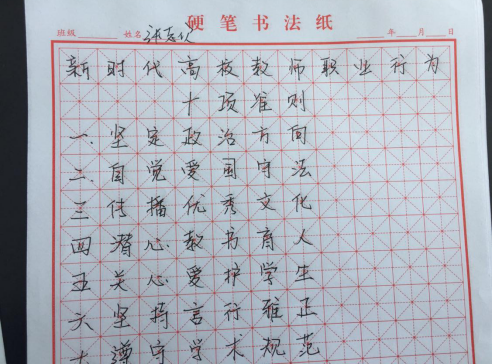 硬笔书法纸
班级 姓名 年 月 日
新时代高校教师职业行为
十项准则
一.坚定政治方向
二.自觉爱国守法
三传播优秀文化
四潜心教书育人
五关心爱护学生
六坚持言行雅正
七遵守学术规范